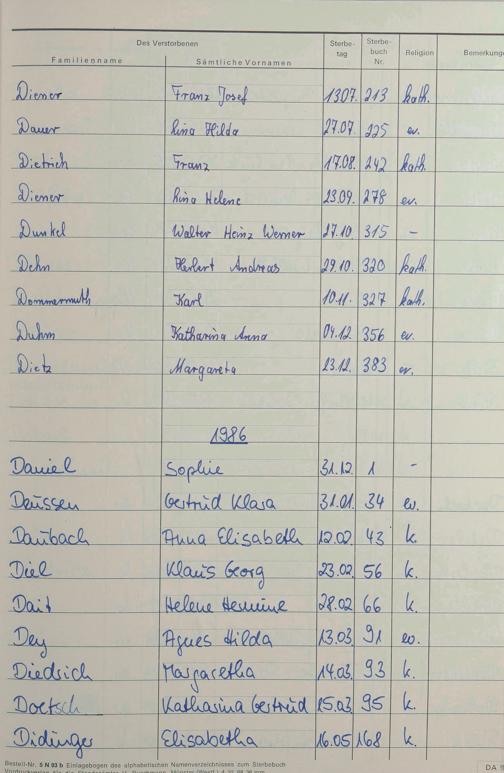 Des Verstorbenen
Familienname Sämtliche Vornamen Sterbe-tag Sterbe-buch Nr. Religion Bemerkung
Diener Franz Josef 13.07. 213 kath.
Dauer Lina Hilda 27.07. 225 ev.
Dietrich Franz 17.08. 242 kath.
Diener Lina Helene 23.09. 278 ev.
Dunkel Walter Heinz Werner 17.10. 315 -
Dehn Herbert Andreas 29.10. 320 kath.
Dommermuth Karl 10.11. 327 kath.
Duhm Katharina Anna 04.12. 356 ev.
Dietz Margareta 23.12. 383 ev.
1986
Daniel Sophie 31.12 1 -
Deussen Gertrud Klara 31.01. 34 ev.
Daubach Anna Elisabeth 12.02. 43 k.
Diel Klaus Georg 23.02. 56 k.
Dait Helene Hermine 28.02 66 k.
Dey Agnes Hilda 13.03. 91 ev.
Diedrich Margaretha 14.03. 93 k.
Doetsch Katharina Gertrud 15.03. 95 k.
Didinger Elisabetha 16.05 168 k.
Bestell-Nr. 5 N 03 b Einlagebogen des alphabetischen Namenverzeichnisses zum Sterbebuch
DA